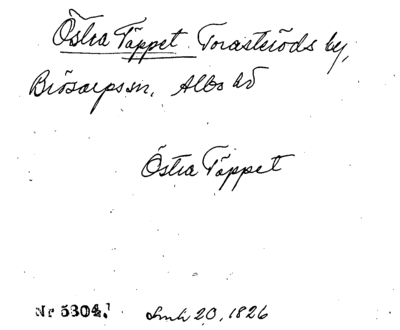 Östra Täppet Torasteröds by,
Brösarps sn. Albo hd
Östra Täppet
Nr 5304. Lmh 20, 1826